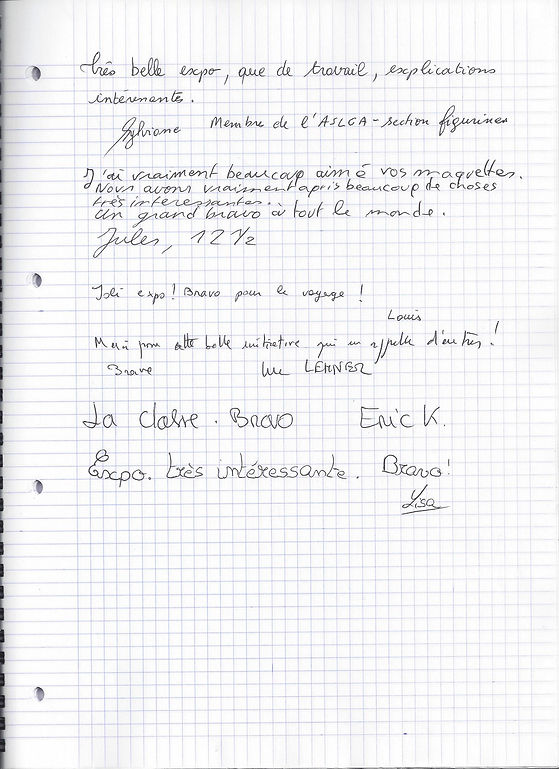 très belle expo, que de travail, explications
intéressantes.
Sylviane Membre de l'ASLGA - section figurines
J'ai vraiment beaucoup aimé vos maquettes.
Nous avons vraiment apris beaucoup de choses
très interessantes.
Un grand bravo à tout le monde.
Jules, 12 1/2
Joli expo! Bravo pour le voyage!
Louis
Merci pour cette belle initiative qui en appelle d'autres!
Bravo Luc LEHNER
La classe. Bravo Eric K.
Expo. très intéressante. Bravo!
Lisa